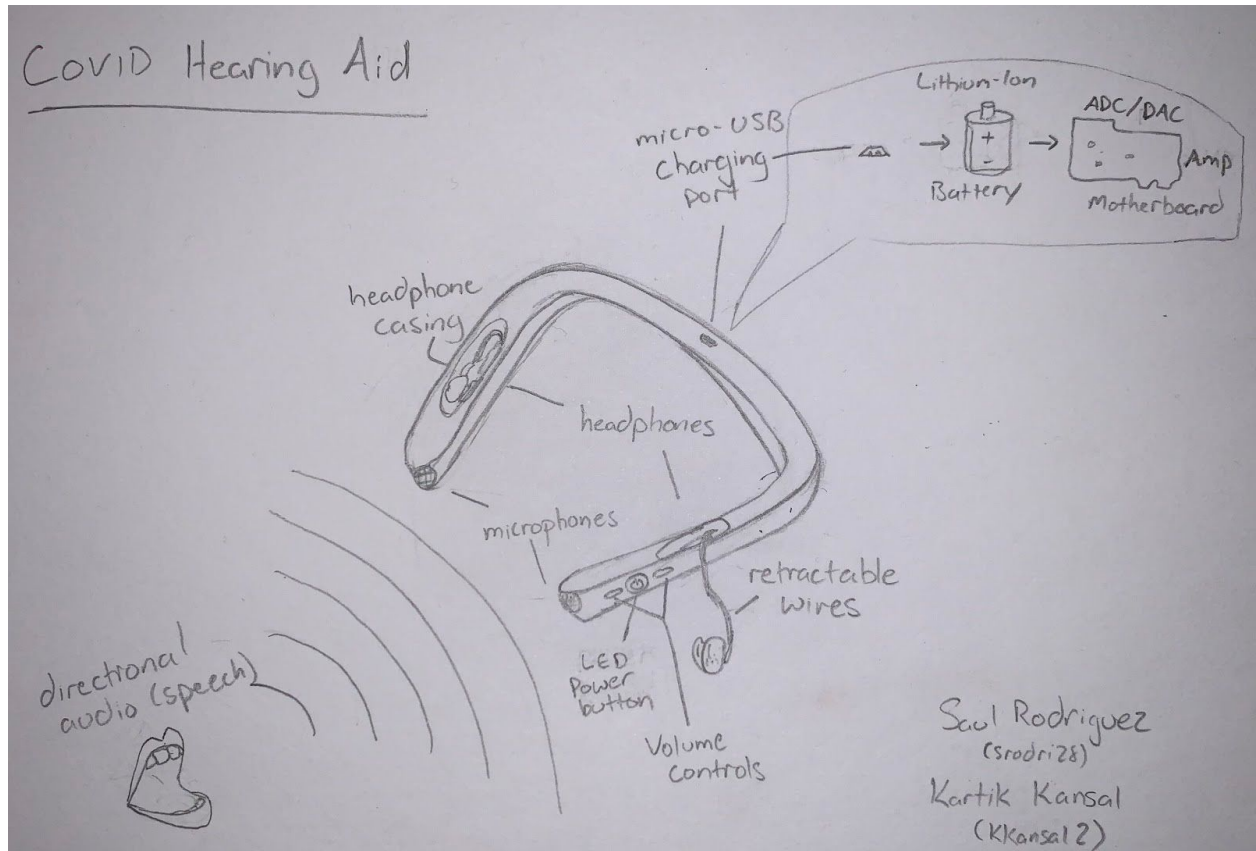 Covid Hearing Aid
micro-USB
Charging
port
Lithium-Ion
+
-
Battery
ADC/DAC
Amp
Motherboard
headphone
casing
headphones
microphones
retractable
wires
LED
Power
button
Volume
controls
directional
audio (speech)
Saul Rodriguez
(Srodri28)
Kartik Kansal
(KKansal2)